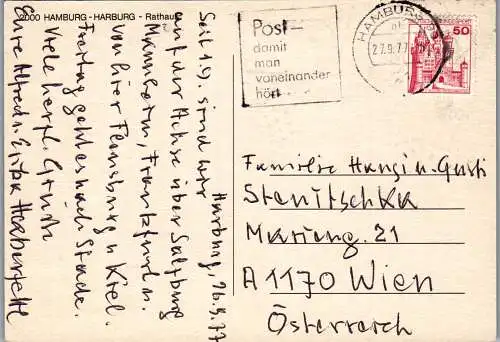 2000 HAMBURG - HARBURG - Rathaus
Harburg, 26.9.77
Seit 19. sind wir
auf der Achse über Salzburg
Mannheim, Frankfurt u.
von hier Flensburg u. Kiel.
Freitag geht es nach Stade.
Viele herzl. Grüße
Eure Alfred u. Erika Haberfellt
Post-
damit
man
voneinander
hört
HAMBURG
27.9.77
50
Familie Hansi u. Gusti
Stanitschka
Marieng. 21
A 1170 Wien
Österreich